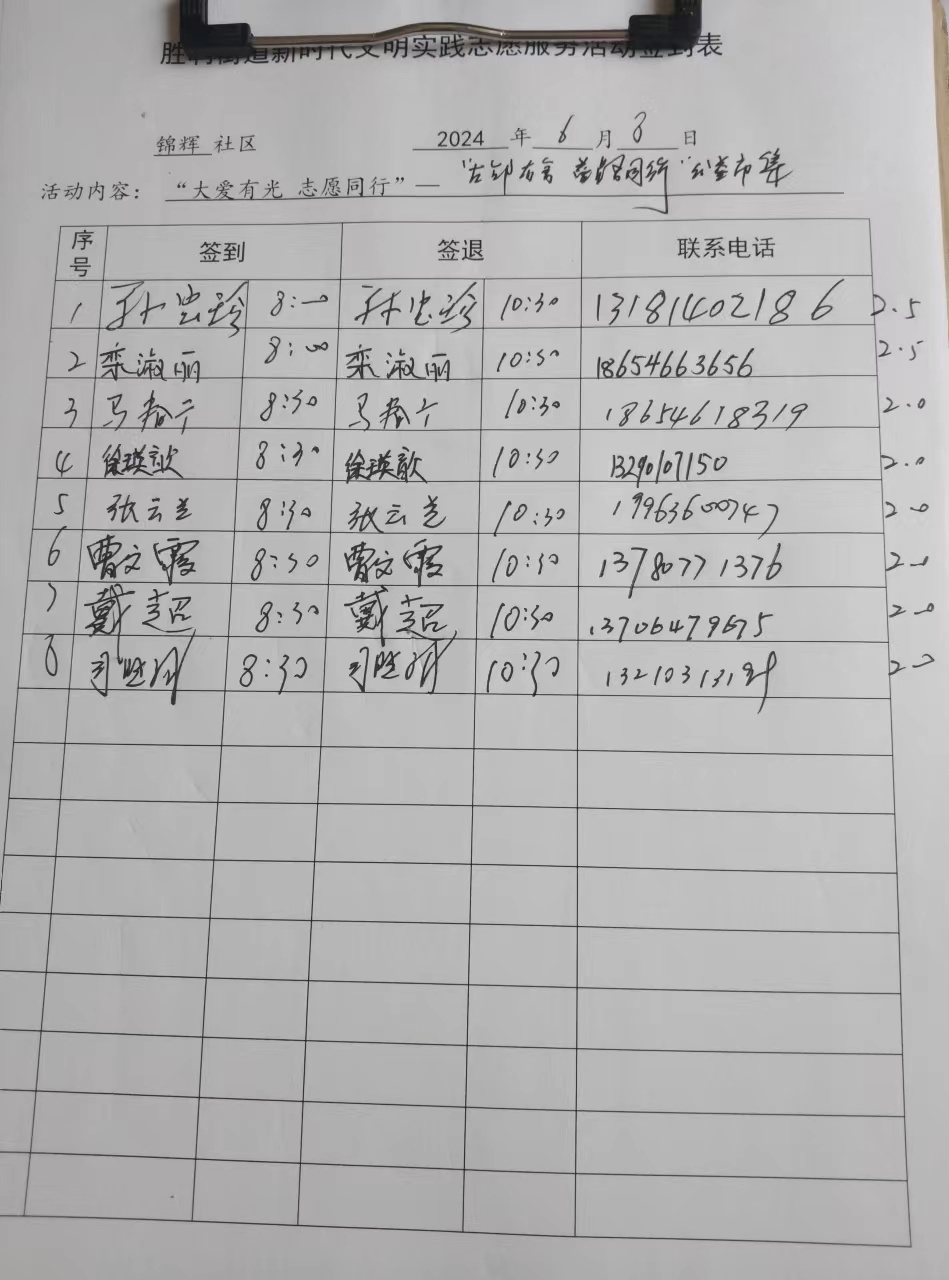 胜利街道新时代文明实践志愿服务活动签到表
锦辉 社区 2024 年 6 月 8 日
活动内容： “大爱有光 志愿同行”— 公益市集
序号 签到 签退 联系电话
1 8:00 10:30 13181402186 2.5
2 栾淑丽 8:00 栾淑丽 10:30 18654663656 2.5
3 马春宁 8:30 马春宁 10:30 18654618319 2.0
4 徐瑛歆 8:30 徐瑛歆 10:30 13290107150 2.0
5 张云兰 8:30 张云兰 10:30 19963600747 2.0
6 曹文霞 8:30 曹文霞 10:30 13780771376 2.0
7 戴超 8:30 戴超 10:30 13706479675 2.0
8 8:30 10:30 2.0